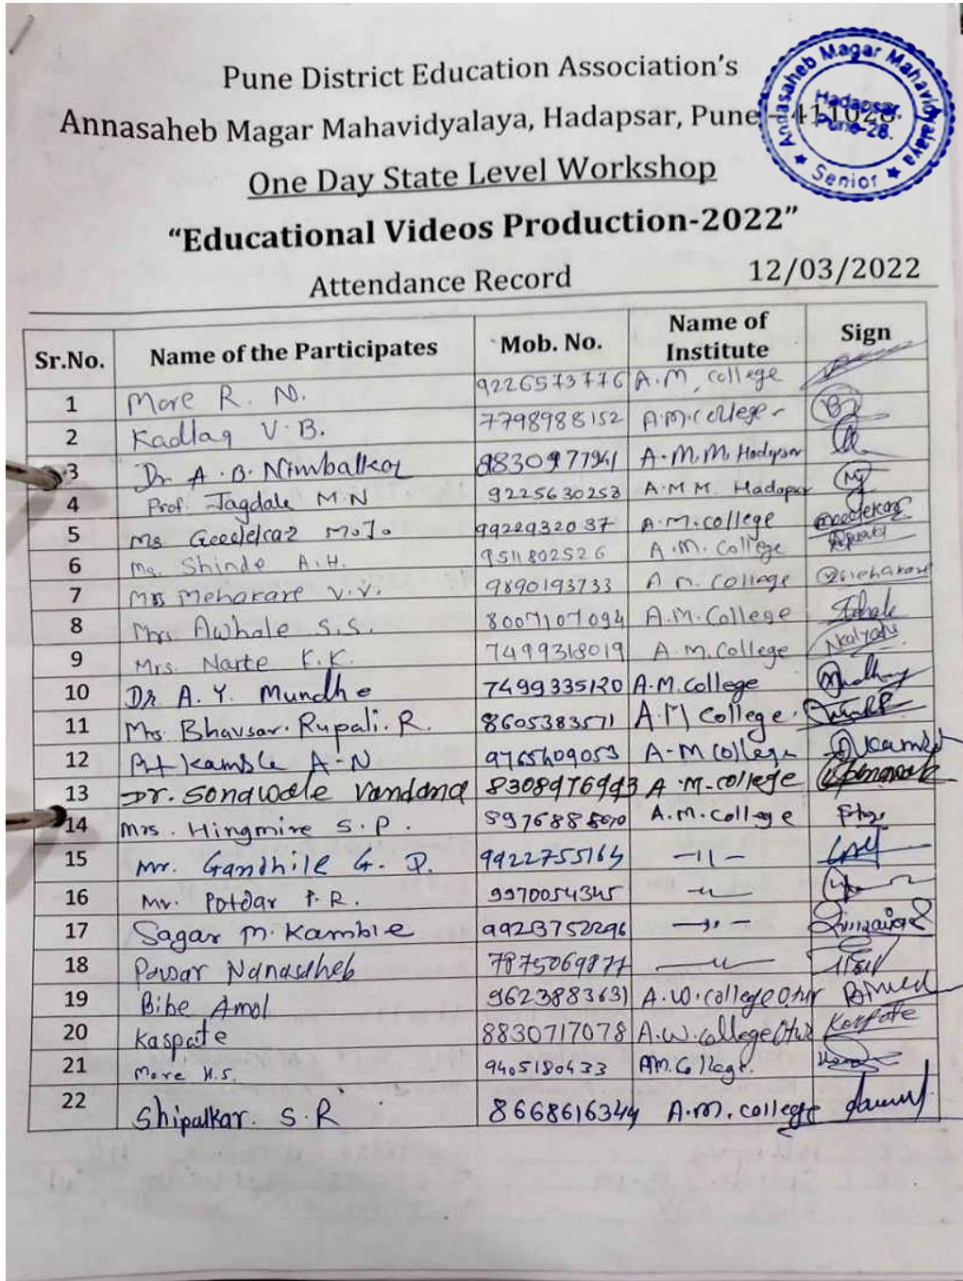 Pune District Education Association's
Annasaheb Magar Mahavidyalaya, Hadapsar, Pune - 411028
Annasaheb Magar Mahavidyalaya
Hadapsar, Pune-28.
★ Senior ★
One Day State Level Workshop
"Educational Videos Production-2022"
Attendance Record 12/03/2022
Sr.No. Name of the Participates Mob. No. Name of Institute Sign
1 More R. N. 9226573776 A.M. college
2 Kadlag V.B. 7798988152 A.M.college
3 Dr A.B. Nimbalkar 9830977941 A.M.M. Hadapsar
4 Prof. Jagdale M.N 9225630253 A.M.M. Hadapsar
5 Ms 9922932037 A.M.college
6 Ms. Shinde A.H. 9511802526 A.M. College
7 Mrs Meharare V.V. 9890193733 A.M. College
8 Mrs Awhale S.S. 8007107094 A.M.College
9 Mrs. Narte K.K. 7499318019 A.M.College
10 Dr A.Y. Mundhe 7499335120 A.M.College
11 Mrs. Bhavsar. Rupali. R. 8605383571 A.M College.
12 Kamble A-N 9765409053 A-M College
13 Dr. Sonawale Vandana 8308976943 A.M.college
14 Mrs. Hingmire S.P. A.M.College
15 Mr. Gandhile G. D. 9922755164 —11—
16 Mr. Potdar P.R. 9970054345 —11—
17 Sagar M. Kamble 9923752296 —11—
18 Pawar Nanasaheb 7875069877 —11—
19 Bibe Amol 9623883631 A.W.college Otur
20 Kaspate 8830717078 A.W.college Otur Kaspate
21 More H.S. 9405180433 AM.College.
22 Shipalkar. S.R 8668616344 A.M.college